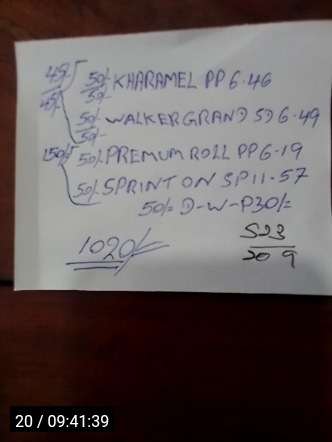 45/- 50/- KHARAMEL PP 6.46
45/- 50/-
50/- WALKER GRAND SD 6.49
50/-
150/- 50/- PREMUM ROLL PP 6-19
50/- SPRINT ON SP 11.57
50/= D-W-P30/=
1020/-
523
20 9
20 / 09:41:39